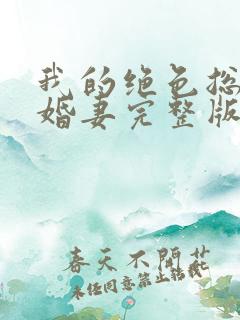 我的绝色总
婚妻完整版
春天不闭花
未任同意禁止转载